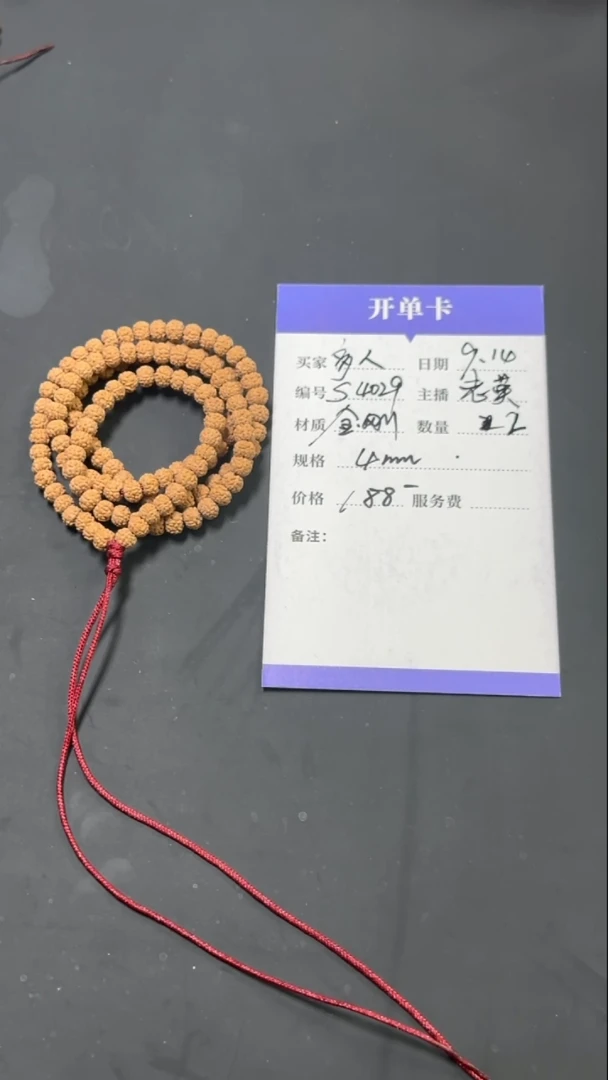 开单卡
买家 多人 日期 9.14
编号 S4029 主播 老莫
材质 金刚 数量 2
规格 4mm
价格 188- 服务费
备注: